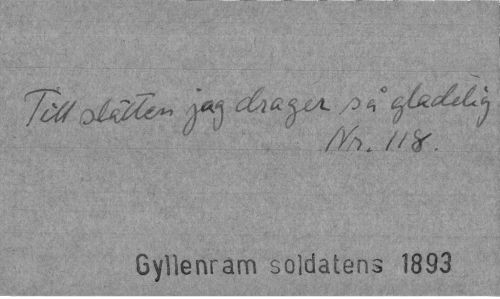 Till slätten jag drager så gladelig
Nr. 118.
Gyllenram soldatens 1893